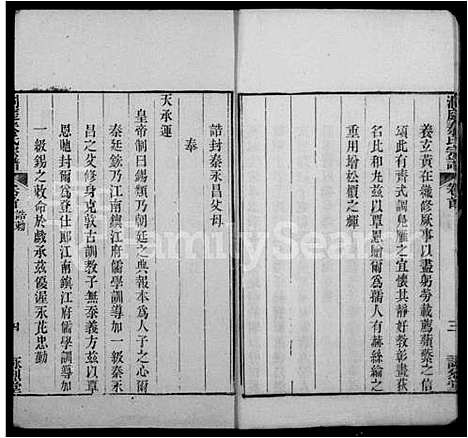 洞庭秦氏宗譜
卷首
三
義立黃在織修厥事以盡躬勞載薦蘋蘩之信
頌此有齊式調鳧雁之宜懷其靜好教彰畫荻
名比和丸茲以覃恩贈爾爲孺人有赫絲綸之
重用增松檟之輝
誥封秦永昌父母
奉
天承運
皇帝制曰錫類乃朝廷之典報本爲人子之心爾
秦廷鋐乃江南鎮江府儒學訓導加一級秦永
昌之父修身克敦古訓教子無忝義方茲以覃
恩貤封爾爲登仕郎江南鎮江府儒學訓導加
一級錫之敕命於戲承茲優渥永茂忠勤
洞庭秦氏宗譜
卷首
誥勅
四
詠烈堂
FamilySearch